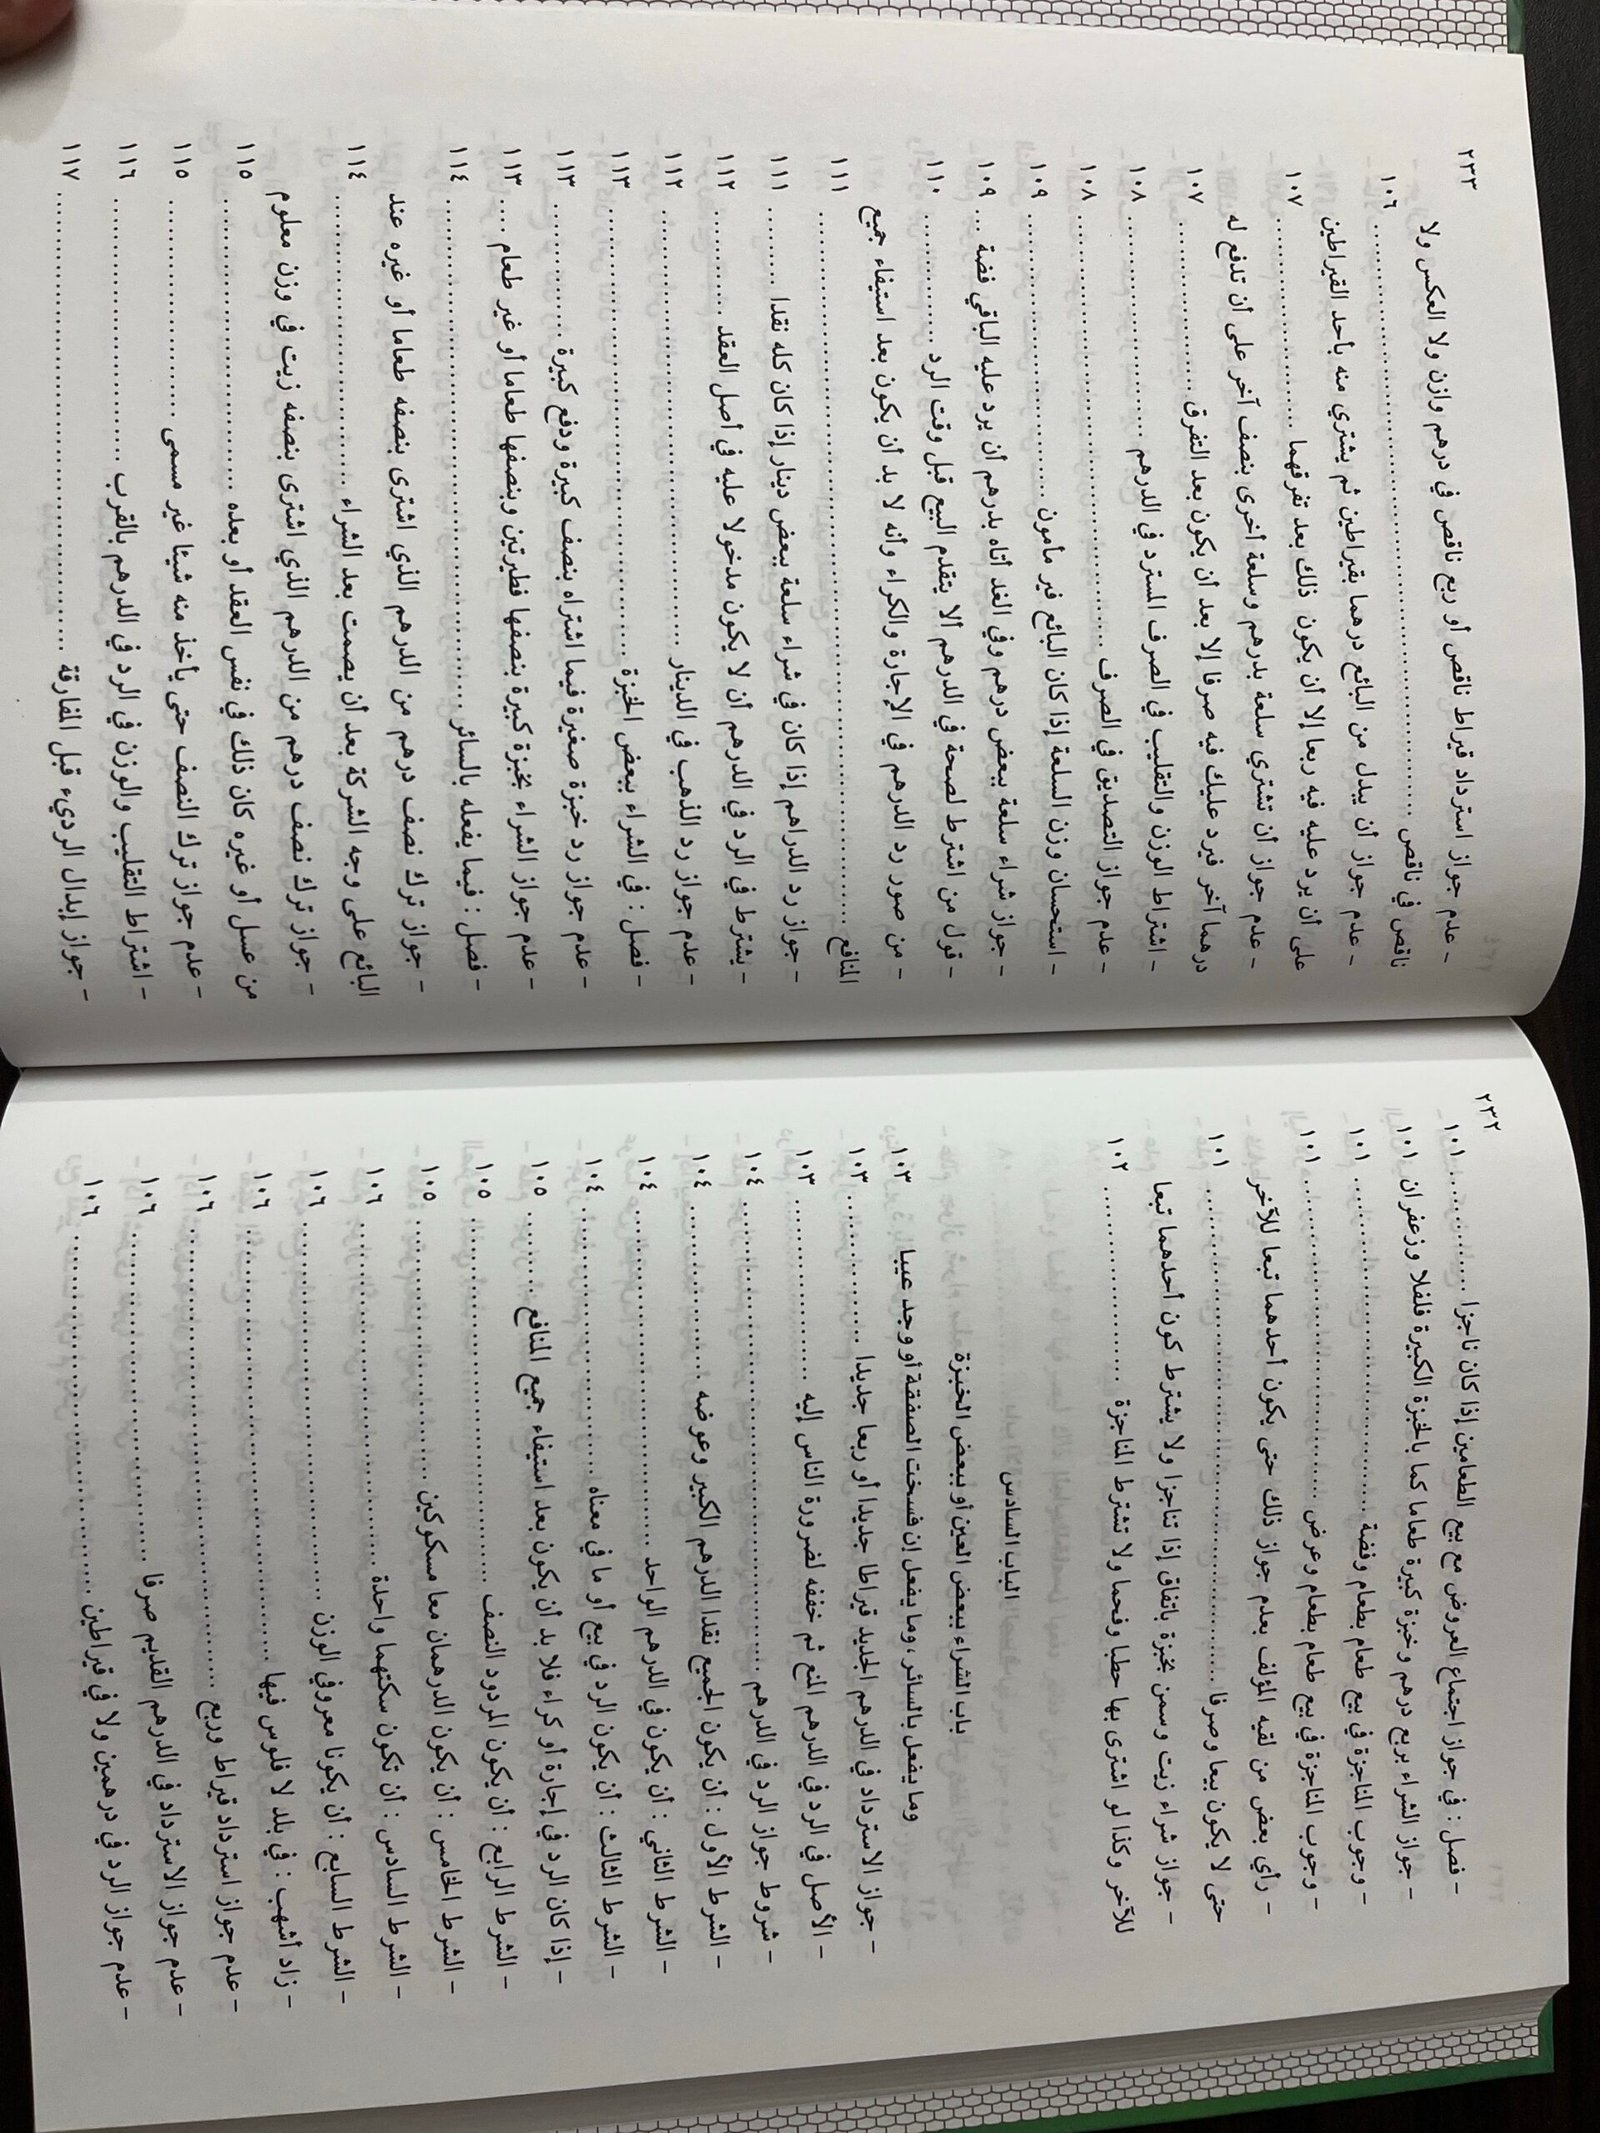 ٢٣٢
- فصل : في جواز اجتماع العروض مع بيع الطعامين إذا كان ناجزا ............ ١٠١
- جواز الشراء بربع درهم وخبزة كبيرة طعاما كما بالخبزة الكبيرة فلفلا وزعفران ١٠١
- وجوب المناجزة في بيع طعام بطعام وفضة ............ ١٠١
- وجوب المناجزة في بيع طعام بطعام وعرض ............ ١٠١
- رأي بعض من لقيه المؤلف بعدم جواز ذلك حتى يكون أحدهما تبعا للآخر
حتى لا يكون بيعا وصرفا ............ ١٠١
- جواز شراء زيت وسمن بخبزة باتفاق إذا تناجزا ولا يشترط كون أحدهما تبعا
للآخر وكذا لو اشترى بها حطبا وفحما ولا تشترط المناجزة ............ ١٠٢
الباب السادس
باب الشراء ببعض العين أو ببعض الخبزة
وما يفعل بالسائر، وما يفعل إن فسخت الصفقة أو وجد عيبا ١٠٣
- جواز الاسترداد في الدرهم الجديد قيراطا جديدا أو ربعا جديدا ............ ١٠٣
- الأصل في الرد في الدرهم المنع ثم خففه لضرورة الناس إليه ............ ١٠٣
- شروط جواز الرد في الدرهم ............ ١٠٤
- الشرط الأول : أن يكون الجميع نقدا الدرهم الكبير وعوضه ............ ١٠٤
- الشرط الثاني : أن يكون في الدرهم الواحد ............ ١٠٤
- الشرط الثالث : أن يكون الرد في بيع أو ما في معناه ............ ١٠٤
- إذا كان الرد في إجارة أو كراء فلا بد أن يكون بعد استيفاء جميع المنافع ............ ١٠٥
- الشرط الرابع : أن يكون المردود النصف ............ ١٠٥
- الشرط الخامس : أن يكون الدرهمان معا مسكوكين ............ ١٠٥
- الشرط السادس : أن تكون سكتهما واحدة ............ ١٠٦
- الشرط السابع : أن يكونا معروفي الوزن ............ ١٠٦
- زاد أشهب : في بلد لا فلوس فيها ............ ١٠٦
- عدم جواز استرداد قيراط وربع ............ ١٠٦
- عدم جواز الاسترداد في الدرهم القديم صرفا ............ ١٠٦
- عدم جواز الرد في درهمين ولا في قيراطين ............ ١٠٦
٢٣٣
- عدم جواز استرداد قيراط ناقص أو ربع ناقص في درهم وازن ولا العكس ولا
ناقص في ناقص ............ ١٠٦
- عدم جواز أن يبدل من البائع درهما بقيراطين ثم يشتري منه بأحد القيراطين
على أن يرد عليه فيه ربعا إلا أن يكون ذلك بعد تفرقهما ............ ١٠٧
- عدم جواز أن تشتري سلعة بدرهم وسلعة أخرى بنصف آخر على أن تدفع له
درهما آخر فيرد عليك فيه صرفا إلا بعد أن يكون بعد التفرق ............ ١٠٧
- اشتراط الوزن والتقليب في الصرف المسترد في الدرهم ............ ١٠٨
- عدم جواز التصديق في الصرف ............ ١٠٨
- استحسان وزن السلعة إذا كان البائع غير مأمون ............ ١٠٩
- جواز شراء سلعة ببعض درهم وفي الغد أتاه بدرهم أن يرد عليه الباقي فضة ... ١٠٩
- قول من اشترط لصحة في الدرهم ألا يتقدم البيع قبل وقت الرد ............ ١١٠
- من صور رد الدرهم في الإجارة والكراء وأنه لا بد أن يكون بعد استيفاء جميع
المنافع ............ ١١١
- جواز رد الدراهم إذا كان في شراء سلعة ببعض دينار إذا كان كله نقدا ............ ١١١
- يشترط في الرد في الدرهم أن لا يكون مدخولا عليه في أصل العقد ............ ١١٢
- عدم جواز رد الذهب في الدينار ............ ١١٢
- فصل : في الشراء ببعض الخبزة ............ ١١٣
- عدم جواز رد خبزة صغيرة فيما اشتراه بنصف كبيرة ودفع كبيرة ............ ١١٣
- عدم جواز الشراء بخبزة كبيرة بنصفها فطيرتين وبنصفها طعاما أو غير طعام ... ١١٣
- فصل : فيما يفعله بالسائر ............ ١١٤
- جواز ترك نصف درهم من الدرهم الذي اشترى بنصفه طعاما أو غيره عند
البائع على وجه الشركة بعد أن يصمت بعد الشراء ............ ١١٤
- جواز ترك نصف درهم من الدرهم الذي اشترى بنصفه زيت في وزن معلوم
من عسل أو غيره كان ذلك في نفس العقد أو بعده ............ ١١٥
- عدم جواز ترك النصف حتى يأخذ منه شيئا غير مسمى ............ ١١٥
- اشتراط التقليب والوزن في الرد في الدرهم بالقرب ............ ١١٦
- جواز إبدال الرديء قبل المفارقة ............ ١١٧